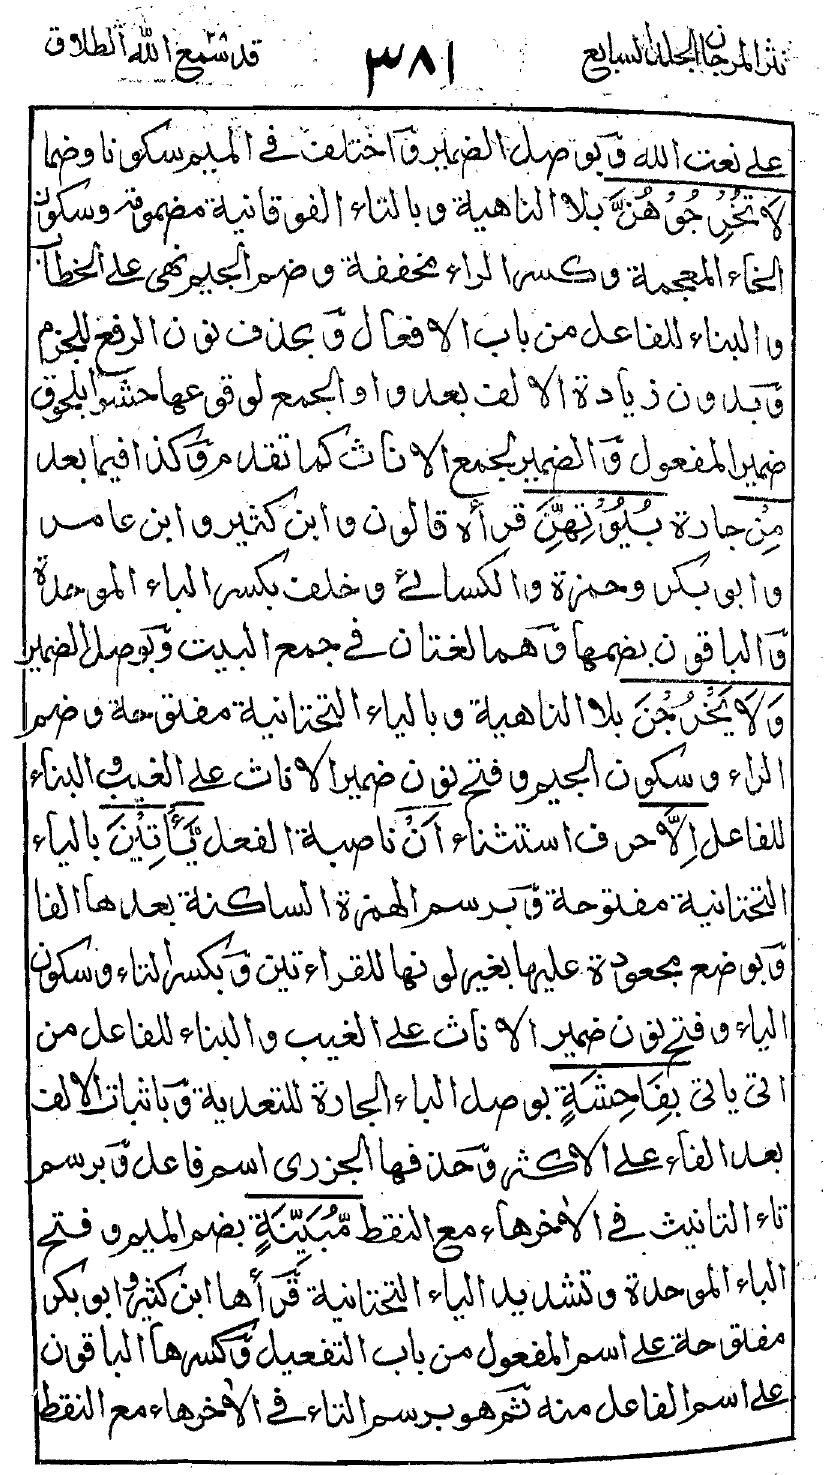 نثر المرجان الجلد السابع ٣٨١ قد سمع الله ٢٨ الطلاق
على نعت الله وٓبوصل الضمير وٓاختلف في الميم سكونا وضما
لَا تُخْرِجُوْهُنَّ بلا الناهية وبالتاء الفوقانية مضمومة وسكون
الخاء المعجمة وكسر الراء مخففة وضم الجيم نهي على الخطاب
والبناء للفاعل من باب الافعال وٓبحذف نون الرفع للجزم
وٓبدون زيادة الالف بعد واو الجمع لوقوعها حشوا بلحوق
ضمير المفعول وٓالضمير لجمع الاناث كما تقدم وٓكذا فيما بعد
مِنْ جارة بُيُوْتِهِنَّ قرأه قالون وابن كثير وابن عامر
وابو بكر وحمزة والكسائي وخلف بكسر الباء الموحدة
وٓالباقون بضمها وٓهما لغتان في جمع البيت وٓبوصل الضمير
وَلَا يَخْرُجْنَ بلا الناهية وبالياء التحتانية مفتوحة وضم
الراء وسكون الجيم وفتح نون ضمير الاناث على الغيب والبناء
للفاعل اِلَّا حرف استثناء اَنْ ناصبة الفعل يَّأْتِيْنَ بالياء
التحتانية مفتوحة وٓبرسم الهمزة الساكنة بعدها الفا
وٓبوضع مجعودة عليها بغير لونها للقراءتين وٓبكسر التاء وسكون
الياء وفتح نون ضمير الاناث على الغيب والبناء للفاعل من
اتى ياتي بِفَاحِشَةٍ بوصل الباء الجارة للتعدية وٓباثبات الالف
بعد الفاء على الاكثر وٓحذفها الجزري اسم فاعل وٓبرسم
تاء التانيث في الأخر هاء مع النقط مُّبَيِّنَةٍ بضم الميم وفتح
الباء الموحدة وتشديد الياء التحتانية قٓرأها ابن كثير وابو بكر
مفتوحة على اسم المفعول من باب التفعيل وٓكسرها الباقون
على اسم الفاعل منه ثم هو برسم التاء في الأخر هاء مع النقط